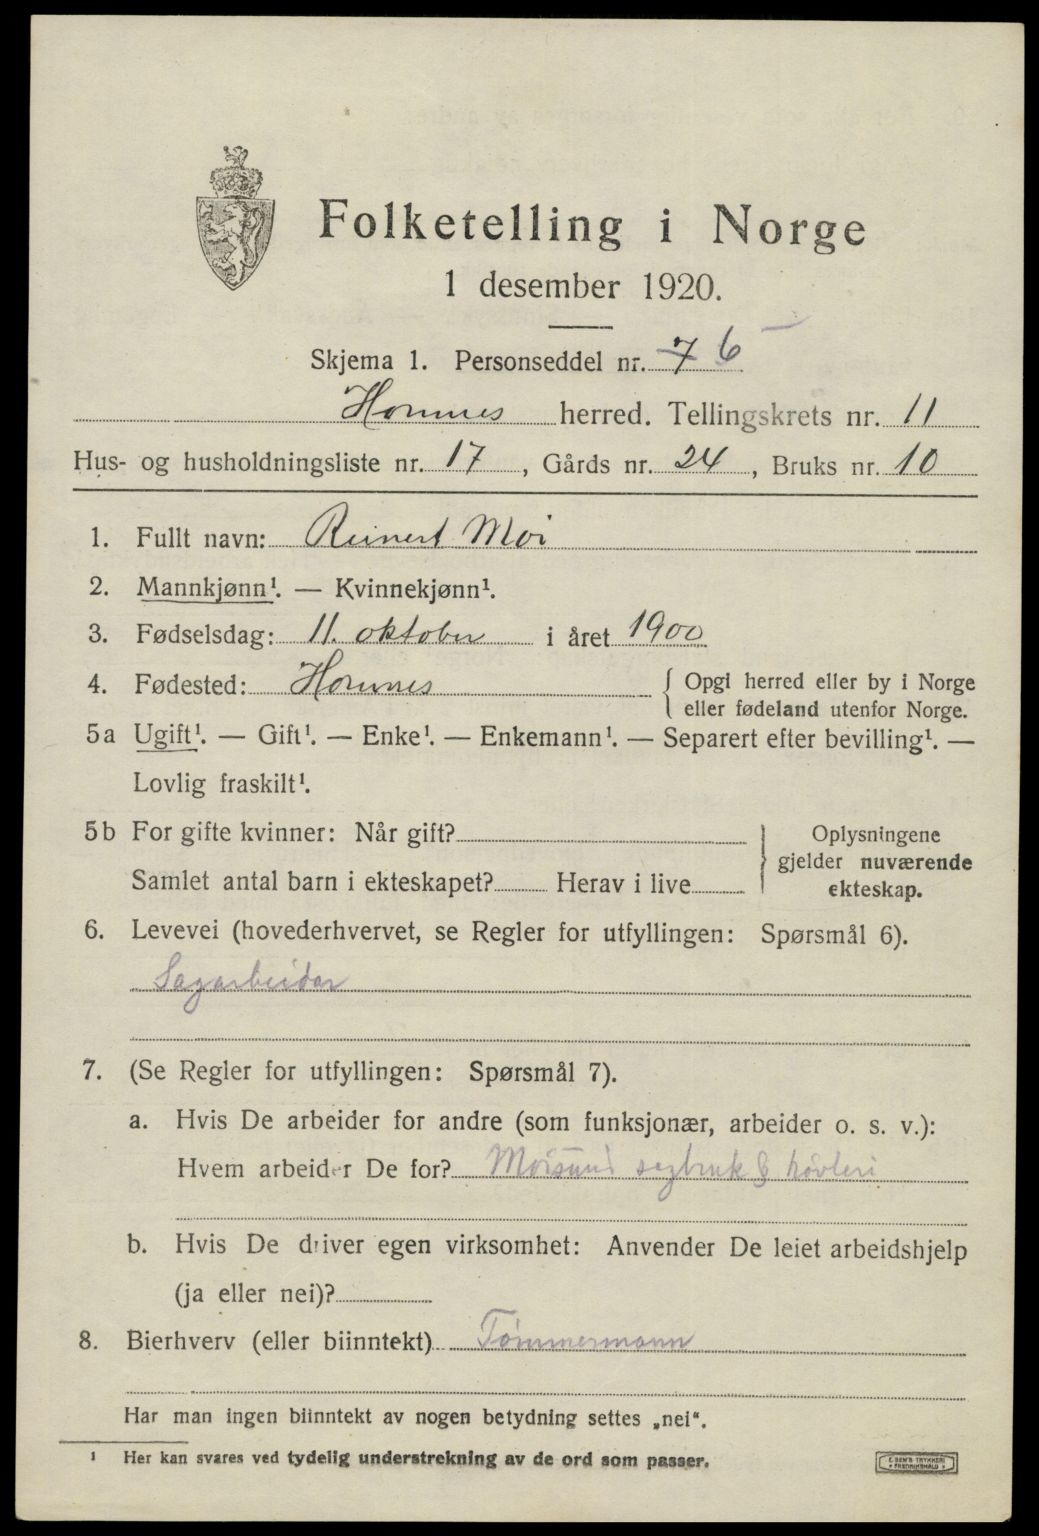 Folketelling i Norge
1 desember 1920.
Skjema 1. Personseddel nr. 7 6
Homnes herred. Tellingskrets nr. 11
Hus- og husholdningsliste nr. 17, Gårds nr. 24, Bruks nr. 10
1. Fullt navn: Reinert Moi
2. Mannkjønn¹. — Kvinnekjønn¹.
3. Fødselsdag: 11. oktober i året 1900
4. Fødested: Homnes { Opgi herred eller by i Norge
eller fødeland utenfor Norge.
5a Ugift¹. — Gift¹. — Enke¹. — Enkemann¹. — Separert efter bevilling¹. —
Lovlig fraskilt¹.
5b For gifte kvinner: Når gift? } Oplysningene
gjelder nuværende
Samlet antal barn i ekteskapet? Herav i live
ekteskap.
6. Levevei (hovederhvervet, se Regler for utfyllingen: Spørsmål 6).
Sagarbeidar
7. (Se Regler for utfyllingen: Spørsmål 7).
a. Hvis De arbeider for andre (som funksjonær, arbeider o. s. v.):
Hvem arbeider De for? Moisund sagbruk & høvleri
b. Hvis De driver egen virksomhet: Anvender De leiet arbeidshjelp
(ja eller nei)?
8. Bierhverv (eller biinntekt) Tömmermann
Har man ingen biinntekt av nogen betydning settes „nei“.
¹ Her kan svares ved tydelig understrekning av de ord som passer.
E. SEM'S TRYKKERI
FREDRIKSHALD